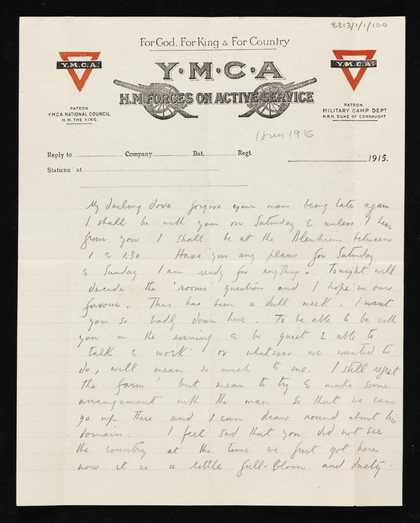 8813/1/1/100
For God, For King & For Country
Y.M.C.A.
Y.M.C.A.
Y·M·C·A
H.M. FORCES ON ACTIVE SERVICE
PATRON
YMCA NATIONAL COUNCIL
H.M. THE KING.
PATRON
MILITARY CAMP DEPT
H.R.H. DUKE OF CONNAUGHT
1916
Reply to Company Bat. Regt.
Stationed at 1915.
My darling dove forgive your man being late again
I shall be with you on Saturday & unless I hear
from you I shall be at the Blenheim between
1 & 1.30 Have you any plans for Saturday
& Sunday I am ready for anything. Tonight will
decide the 'rooms' question and I hope in our
favour. This has been a dull week. I want
you so badly down here. To be able to be with
you in the evening & be quiet & able to
talk & work or whatever we wanted to
do, will mean so much to me. I still regret
the farm but mean to try & make some
arrangement with the man so that we can
go up there and I can draw round about his
domain. I feel sad that you did not see
the country at the time we first got here
now it is a little full-blown and dusty.